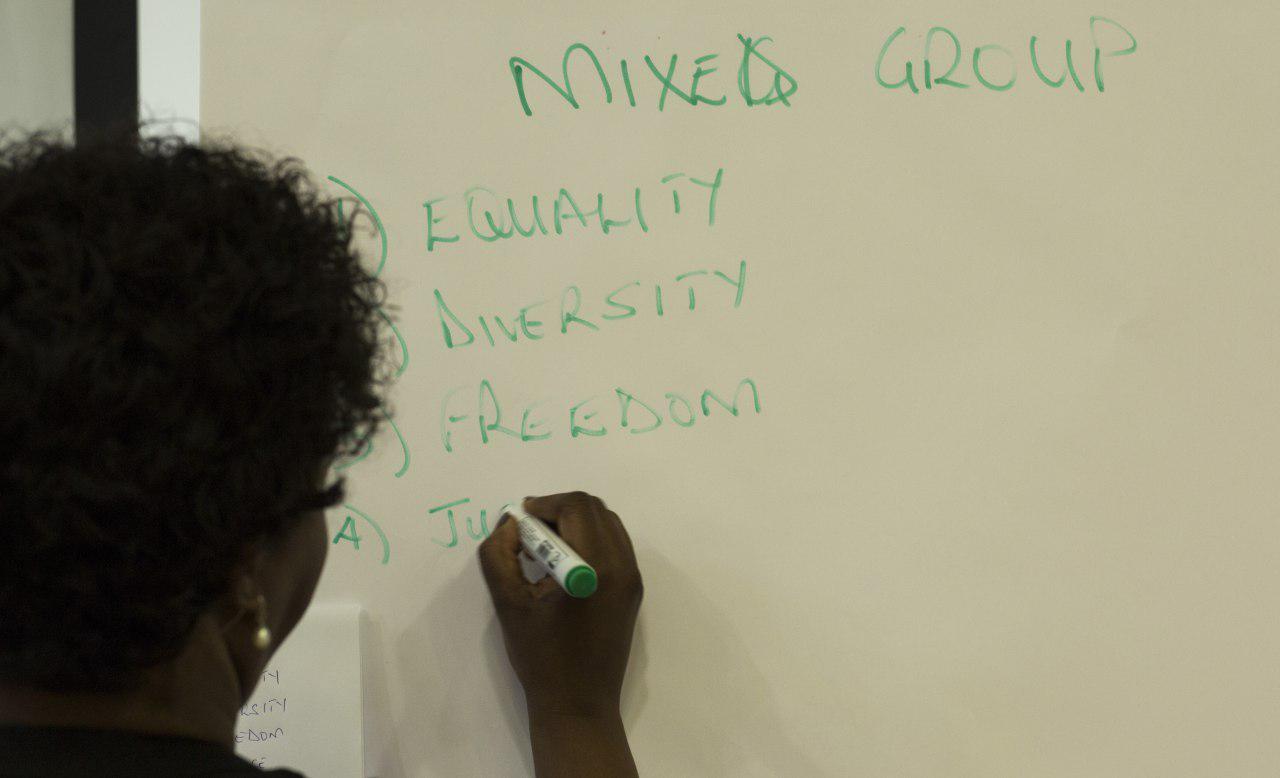 MIXED GROUP
1) EQUALITY
) DIVERSITY
) FREEDOM
4) Ju
TY
RSITY
EDOM
CE